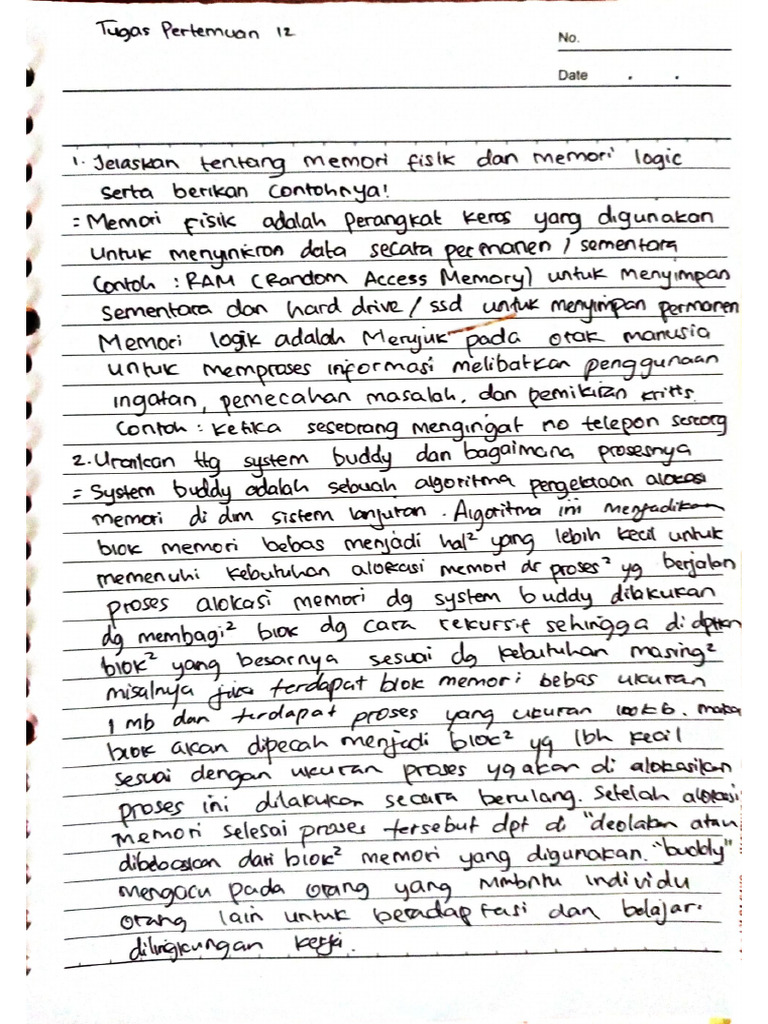 Tugas Pertemuan 12
No.
Date . .
1. Jelaskan tentang memori fisik dan memori logic
serta berikan Contohnya!
= Memori fisik adalah perangkat keros yang digunakan
Untuk menyinkron data secara permanen / sementara
Contoh : RAM (Random Access Memory) untuk menyimpan
Sementara dan hard drive / ssd untuk menyimpan permanen
Memori logik adalah Merujuk pada otak manusia
untuk memproses informasi melibatkan penggunaan
ingatan, pemecahan masalah, dan pemikiran kritis.
Contoh : Ketika seseorang mengingat no telepon seseorg
2. Uraikan ttg system buddy dan bagaimana prosesnya
= System buddy adalah sebuah algoritma pengelolaan alokasi
memori di dlm sistem lanjutan. Algoritma ini menjadikan
blok memori bebas menjadi hal² yang lebih kecil untuk
memenuhi kebutuhan alokasi memori dr proses² yg berjalan
proses alokasi memori dg system buddy dilakukan
dg membagi² blok dg cara rekursif sehingga di dptkn
blok² yang besarnya sesuai dg kebutuhan masing²
misalnya jika terdapat blok memori bebas ukuran
1 mb dan terdapat proses yang ukuran 100kb. maka
blok akan dipecah menjadi blok² yg lbh kecil
sesuai dengan ukuran proses yg akan di alokasikan
proses ini dilakukan secara berulang. Setelah alokasi
memori selesai proses tersebut dpt di "deolakan atau
dibebaskan dari blok² memori yang digunakan. "buddy"
mengacu pada orang yang mmbntu individu
orang lain untuk beradaptasi dan belajar.
dilingkungan kerja.